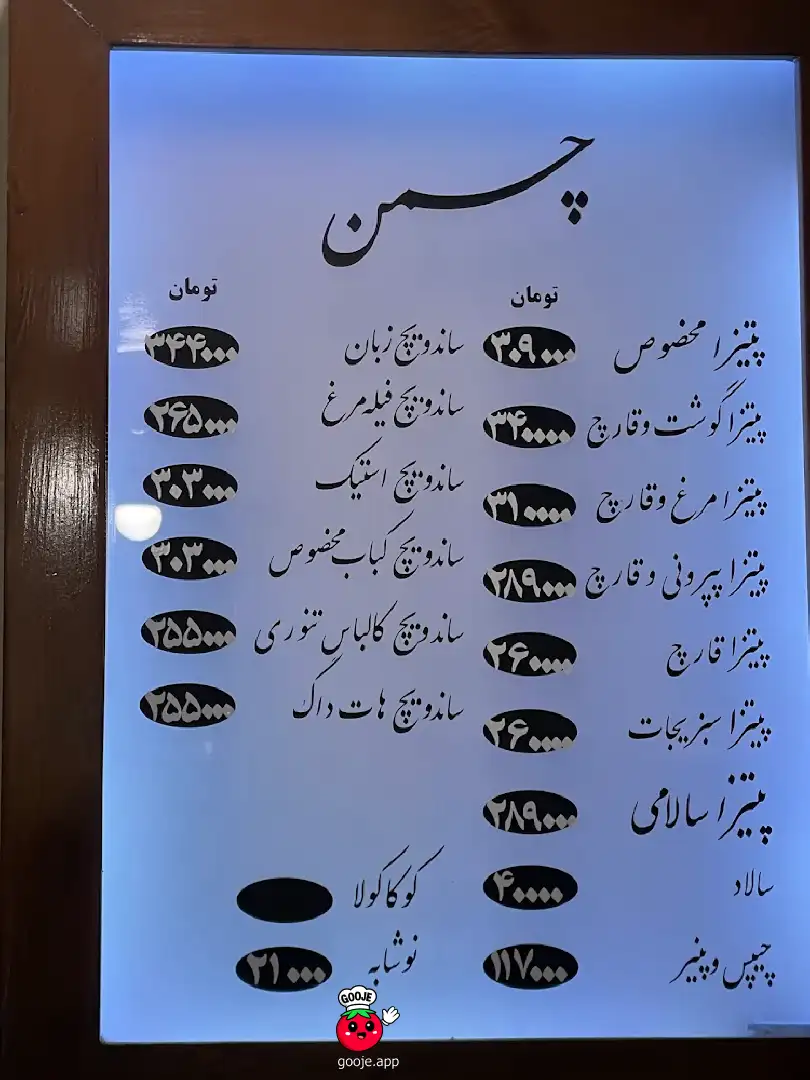 چمن
تومان
پیتزا مخصوص ۳۰۹۰۰۰
پیتزا گوشت و قارچ ۳۴۰۰۰۰
پیتزا مرغ و قارچ ۳۱۰۰۰۰
پیتزا پپرونی و قارچ ۲۸۹۰۰۰
پیتزا قارچ ۲۶۰۰۰۰
پیتزا سبزیجات ۲۶۰۰۰۰
پیتزا سالامی ۲۸۹۰۰۰
سالاد ۴۰۰۰۰
چیپس و پنیر ۱۱۷۰۰۰
تومان
ساندویچ زبان ۳۴۴۰۰۰
ساندویچ فیله مرغ ۲۶۵۰۰۰
ساندویچ استیک ۳۰۳۰۰۰
ساندویچ کباب مخصوص ۳۰۳۰۰۰
ساندویچ کالباس تنوری ۲۵۵۰۰۰
ساندویچ هات داگ ۲۵۵۰۰۰
کوکاکولا
نوشابه ۲۱۰۰۰
GOOJE
gooje.app